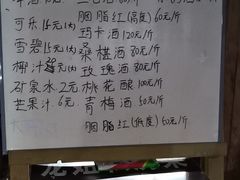 胭脂红(高度) 60元/斤
可乐15元/大
玛卡酒120元/斤
雪碧15元/大
桑椹酒80元/斤
椰汁
玫瑰酒80元/斤
矿泉水2元
桃花酿100元/斤
芒果汁6元
青梅酒50元/斤
胭脂红(低度) 50元/斤